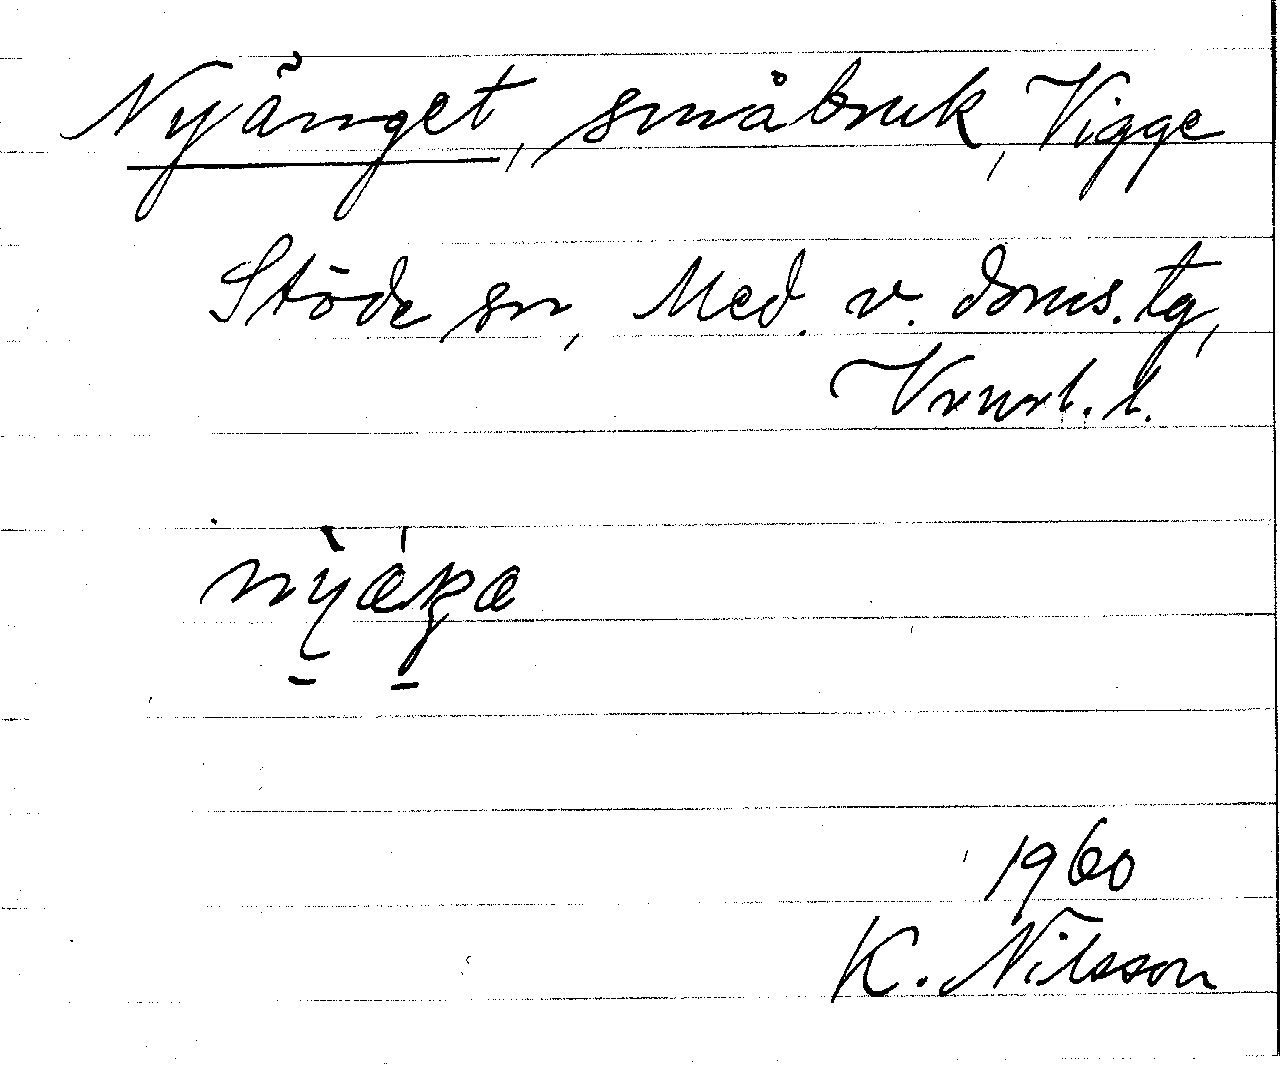 Nyänget, småbruk, Vigge
Stöde sn, Med. v. doms. tg,
Vrnorl. l.
1960
K. Nilsson